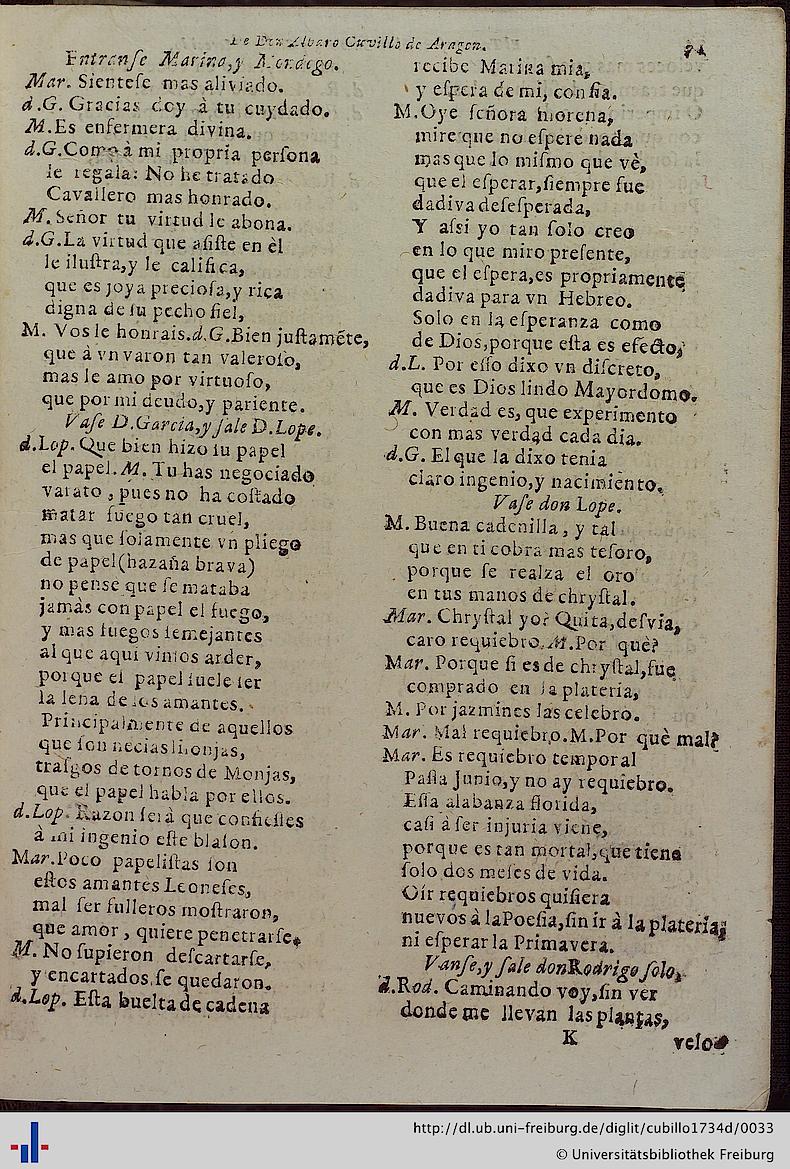 De Don Alvaro Cuvillo de Aragon.
Entranſe Marina, y Mendego.
Mar. Sienteſe mas aliviado.
d.G. Gracias doy à tu cuydado.
M. Es enfermera divina.
d.G. Como à mi propria perſona
ſe regala: No he tratado
Cavallero mas honrado.
M. Señor tu virtud le abona.
d.G. La virtud que aſiſte en èl
le iluſtra, y le califica,
que es joya precioſa, y rica
digna de ſu pecho fiel,
M. Vos le honrais. d.G. Bien juſtamẽte,
que à vn varon tan valeroſo,
mas le amo por virtuoſo,
que por mi deudo, y pariente.
Vaſe D. Garcia, y ſale D. Lope.
d.Lop. Que bien hizo ſu papel
el papel. M. Tu has negociado
varato, pues no ha coſtado
matar fuego tan cruel,
mas que ſolamente vn pliego
de papel (hazaña brava)
no pense que ſe mataba
jamàs con papel el fuego,
y mas fuegos ſemejantes
al que aqui vimos arder,
porque el papel ſuele ſer
la leña de los amantes.
Principalmente de aquellos
que ſon necias liſonjas,
traſgos de tornos de Monjas,
que el papel habla por ellos.
d.Lop. Razon ſerà que confieſſes
à mi ingenio eſte blaſon.
Mar. Poco papeliſtas ſon
eſtos amantes Leoneſes,
mal ſer fulleros moſtraron,
que amor, quiere penetrarſe.
M. No ſupieron deſcartarſe,
y encartados ſe quedaron.
d.Lop. Eſta buelta de cadena
recibe Marina mia,
y eſpera de mi, confia.
M. Oye ſeñora morena,
mire que no eſpere nada
mas que lo miſmo que vè,
que el eſperar, ſiempre fue
dadiva deſeſperada,
Y aſsi yo tan ſolo creo
en lo que miro preſente,
que el eſpera, es propriamente
dadiva para vn Hebreo.
Solo en la eſperanza como
de Dios, porque eſta es efecto,
d.L. Por eſſo dixo vn diſcreto,
que es Dios lindo Mayordomo.
M. Verdad es, que experimento
con mas verdad cada dia.
d.G. El que la dixo tenia
claro ingenio, y nacimiento.
Vaſe don Lope.
M. Buena cadenilla, y tal
que en ti cobra mas teſoro,
porque ſe realza el oro
en tus manos de chryſtal.
Mar. Chryſtal yo? Quita, deſvia,
caro requiebro. M. Por què?
Mar. Porque ſi es de chryſtal, fue
comprado en la plateria,
M. Por jazmines las celebro.
Mar. Mal requiebro. M. Por què mal?
Mar. Es requiebro temporal
Paſſa Junio, y no ay requiebro.
Eſſa alabanza florida,
caſi à ſer injuria viene,
porque es tan mortal, que tiene
ſolo dos meſes de vida.
Oir requiebros quiſiera
nuevos à la Poeſia, ſin ir à la plateria,
ni eſperar la Primavera.
Vanſe, y ſale don Rodrigo ſolo,
d.Rod. Caminando voy, ſin ver
donde me llevan las plantas,
K
veloz
http://dl.ub.uni-freiburg.de/diglit/cubillo1734d/0033
© Universitätsbibliothek Freiburg